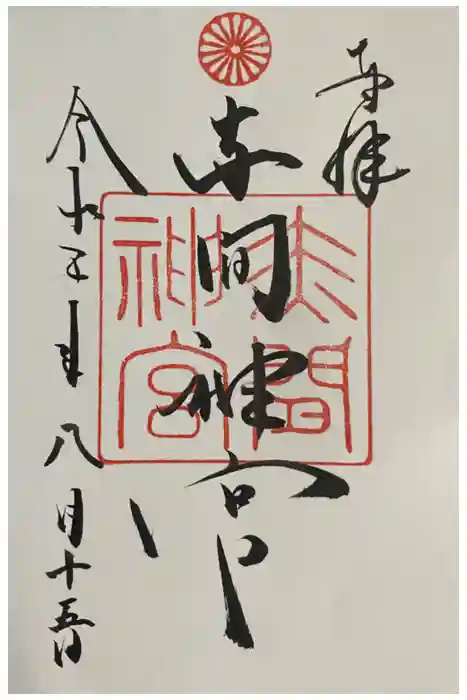 奉拝
赤間神宮
赤間
神宮
令和五年八月十五日